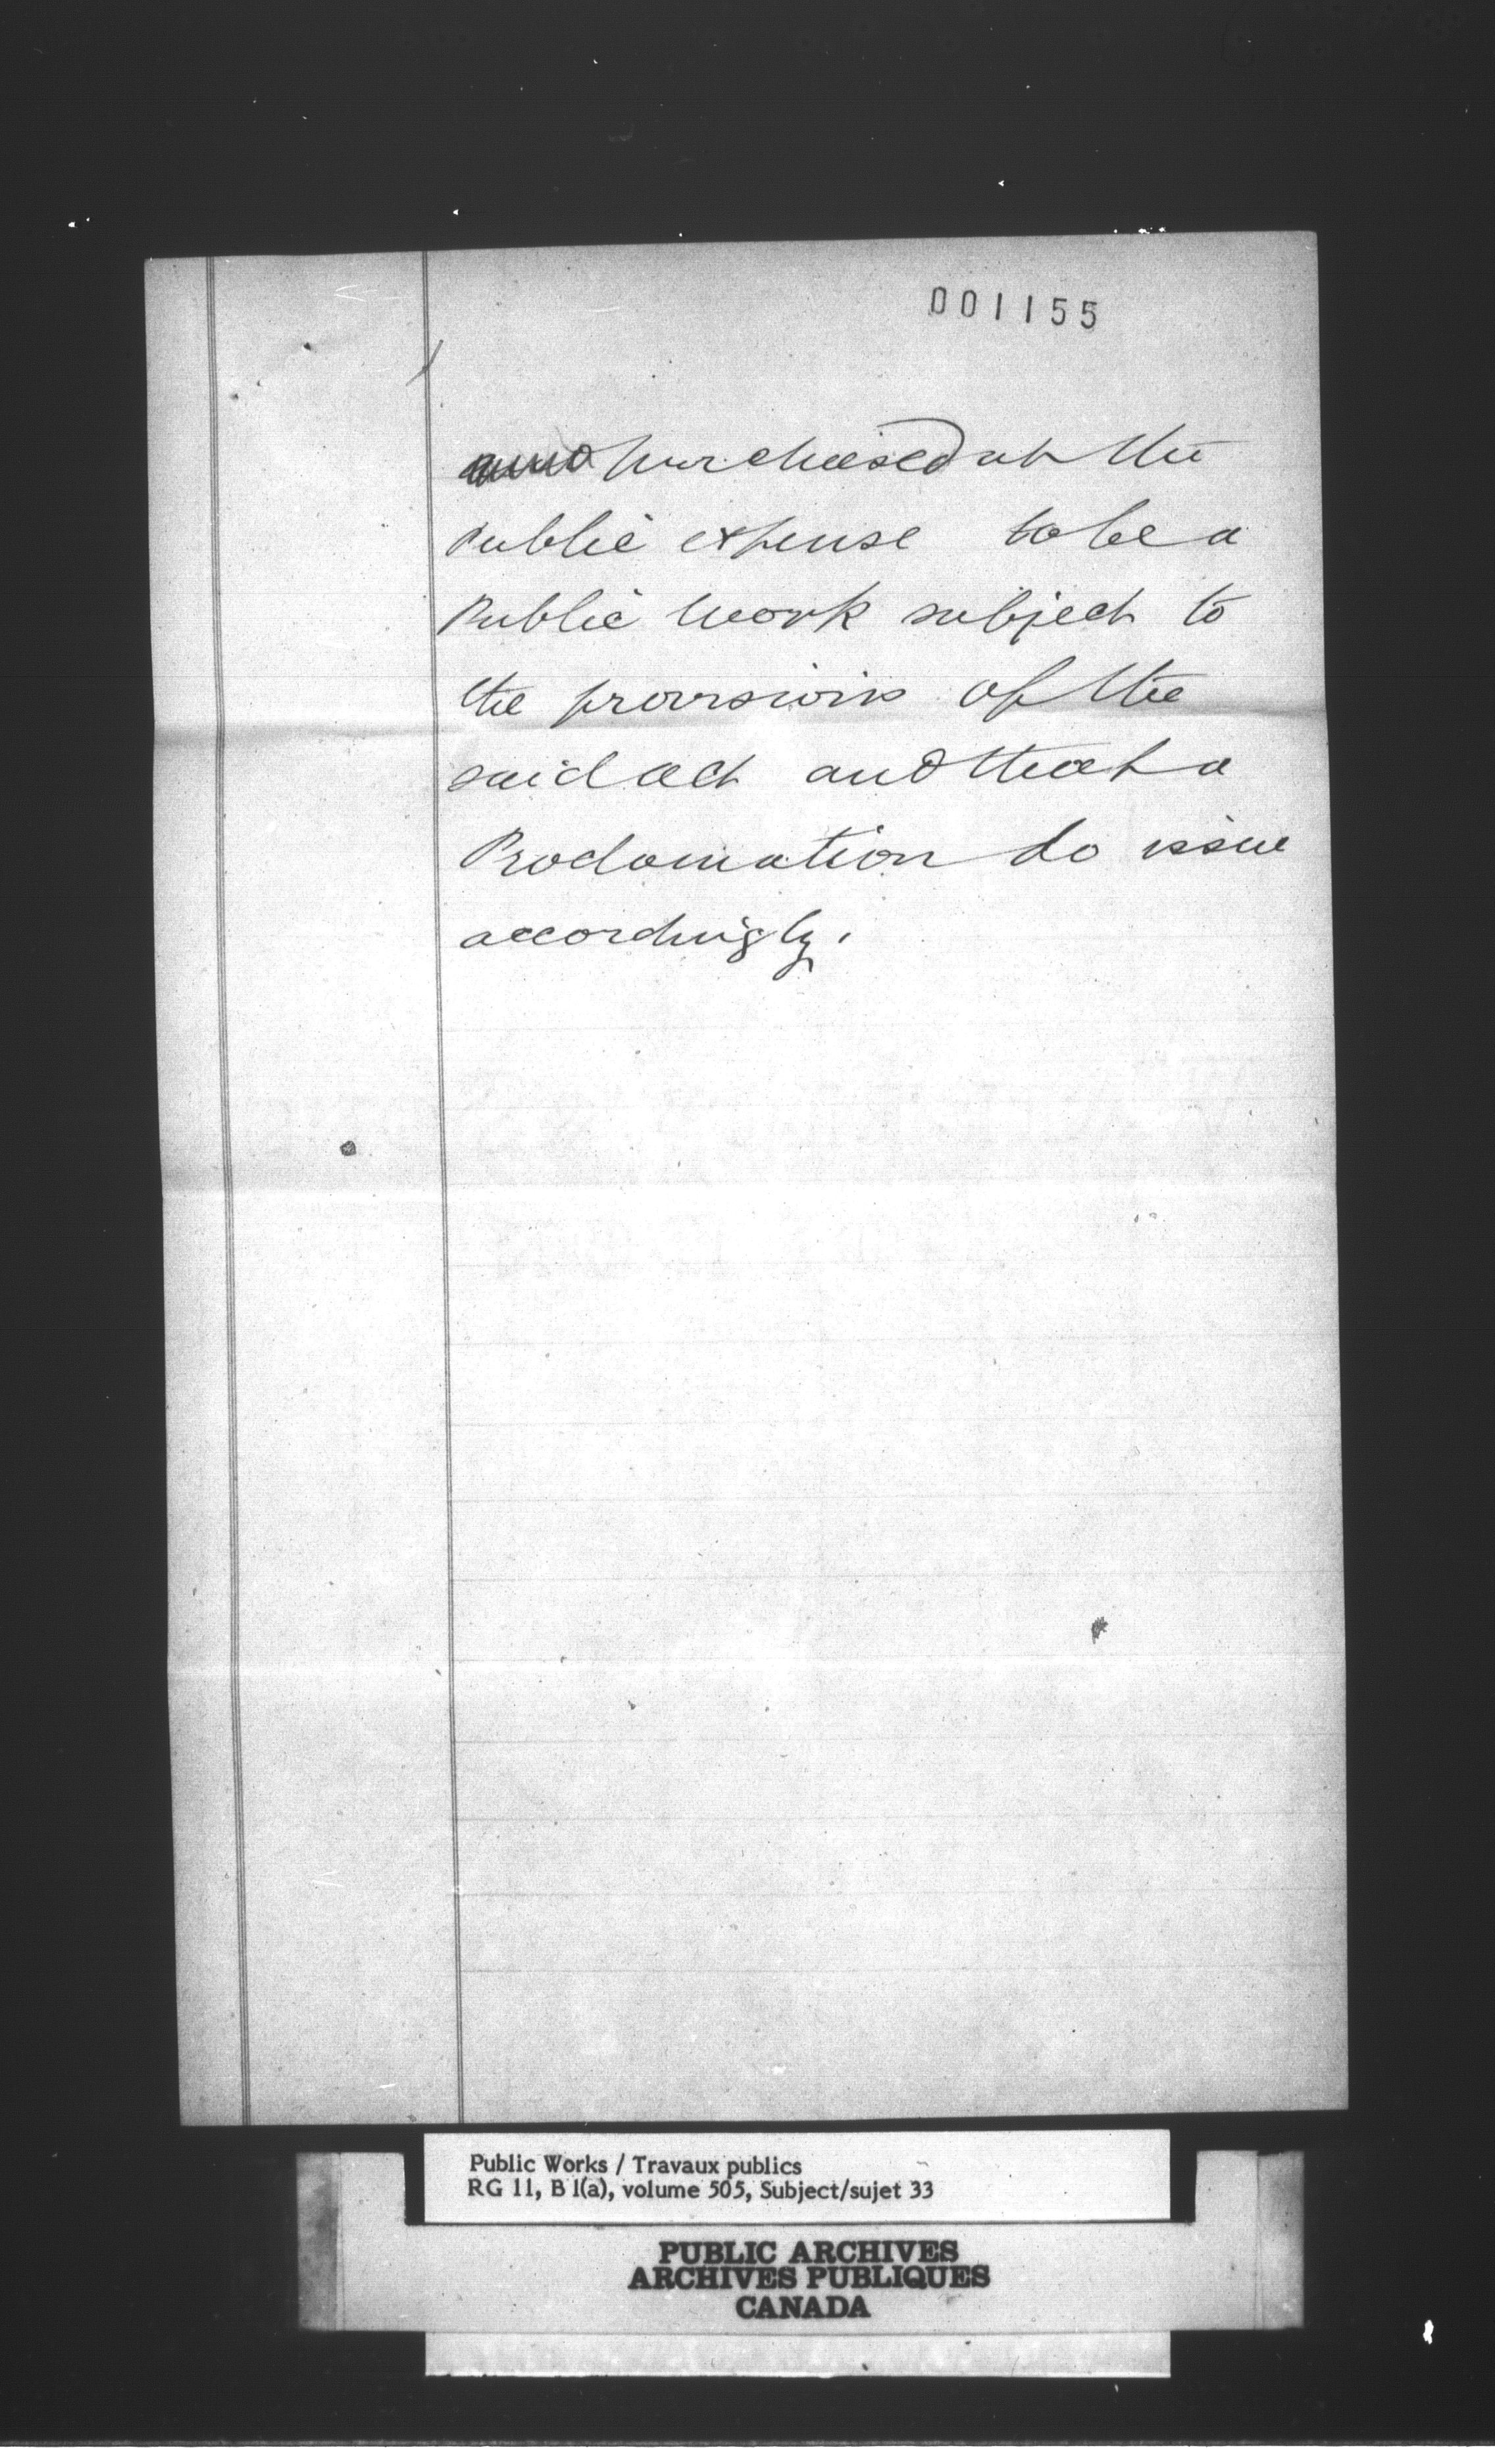 001155
and purchased at the
Public expense to be a
Public Work subject to
the provisions of the
said act and that a
Proclamation do issue
accordingly.
Public Works / Travaux publics
RG 11, B 1(a), volume 505, Subject/sujet 33
PUBLIC ARCHIVES
ARCHIVES PUBLIQUES
CANADA